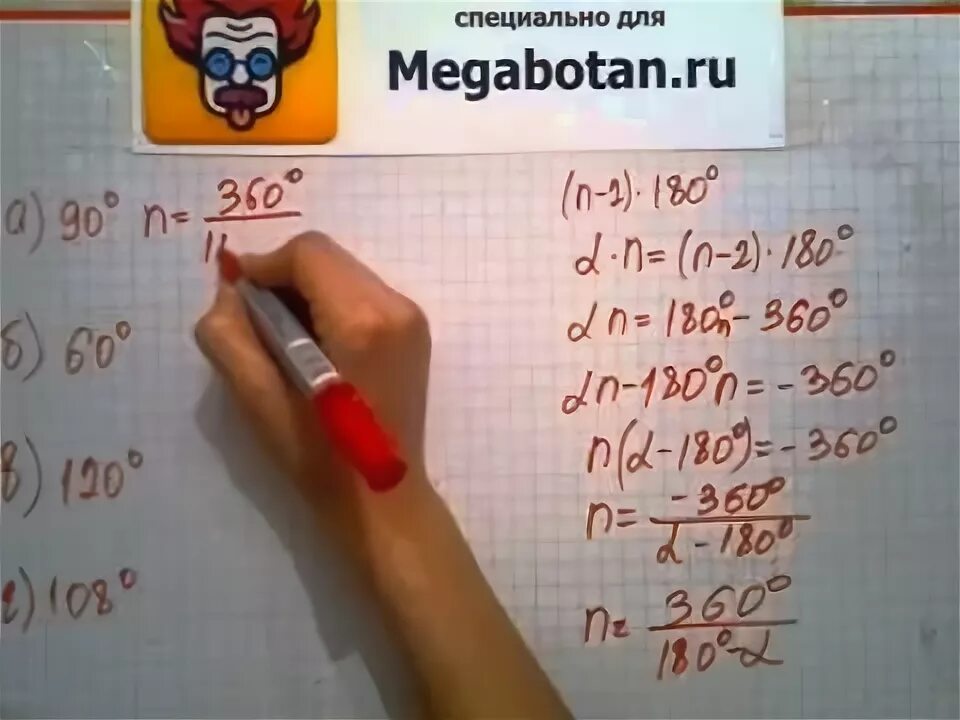 специально для
Megabotan.ru
а) 90° n = 360° / 1
б) 60°
в) 120°
г) 108°
(n-2)·180°
α·n = (n-2)·180°
αn = 180°n - 360°
αn - 180°n = -360°
n(α-180°) = -360°
n = -360° / α - 180°
n = 360° / 180° - α